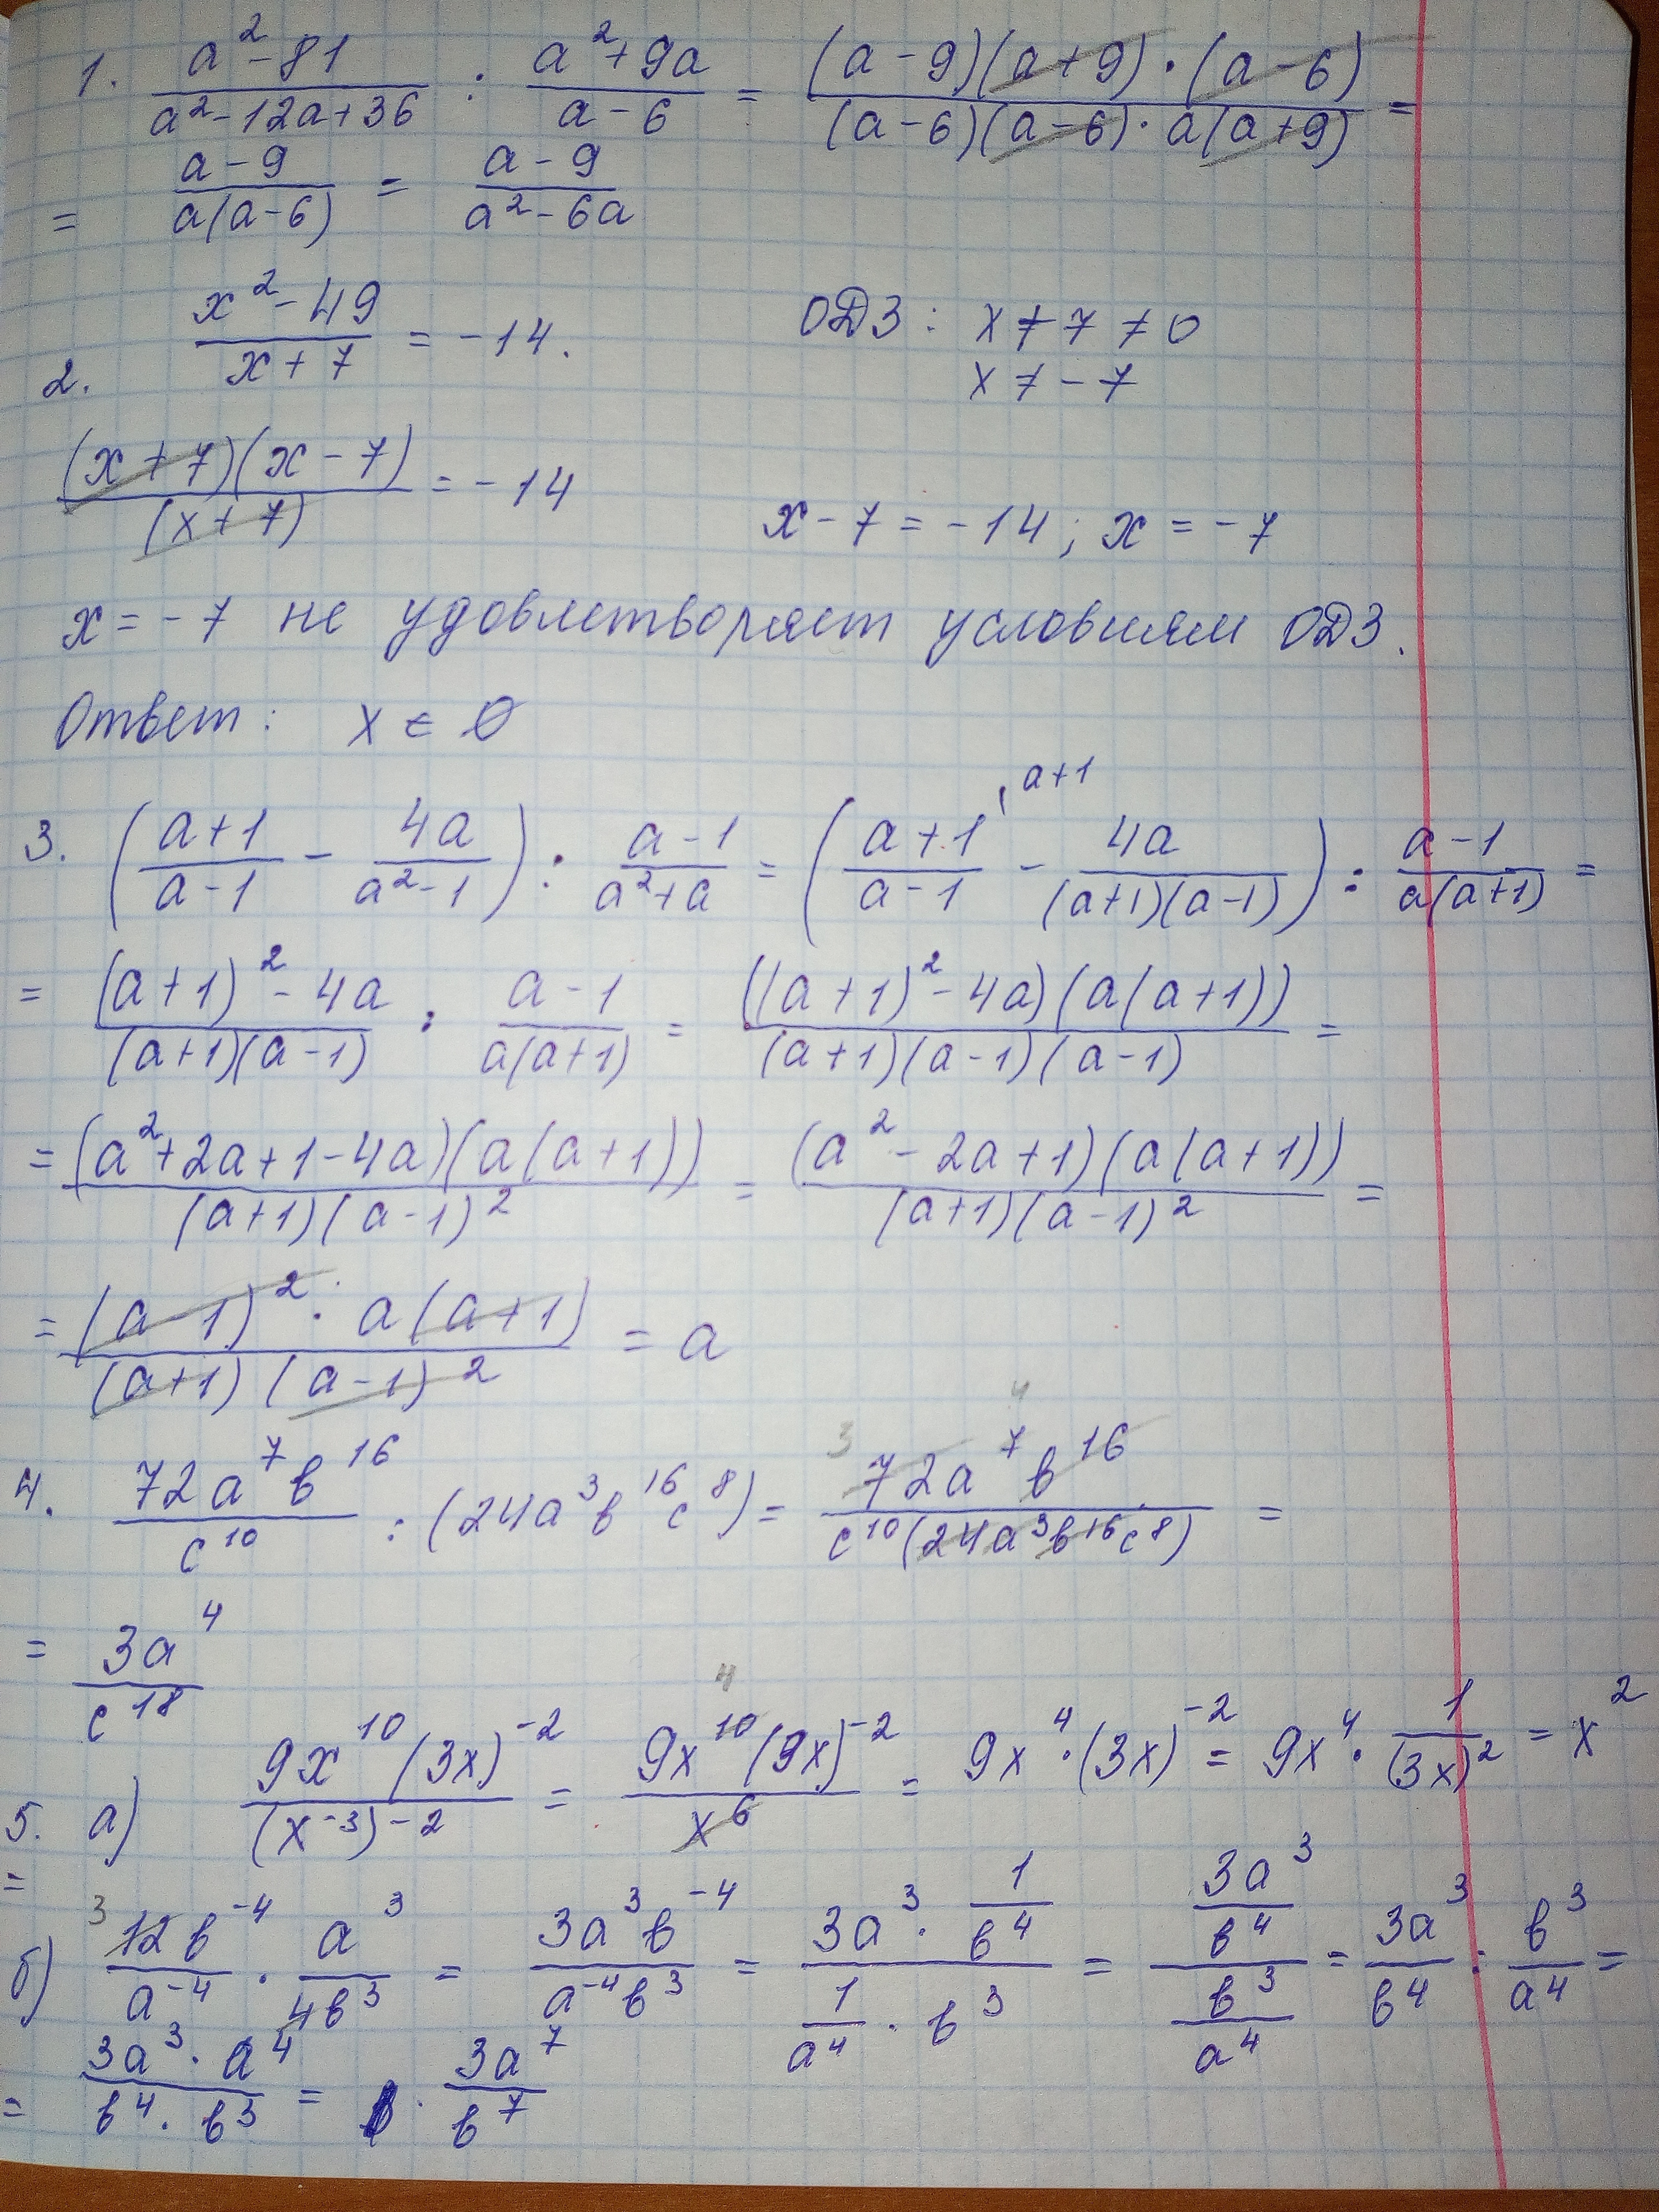 1. (a² - 81)/(a² - 12a + 36) : (a² + 9a)/(a - 6) = ((a - 9)(a + 9) · (a - 6))/((a - 6)(a - 6) · a(a + 9)) =
= (a - 9)/(a(a - 6)) = (a - 9)/(a² - 6a)
2. (x² - 49)/(x + 7) = -14. ОДЗ: x + 7 ≠ 0
x ≠ -7
((x + 7)(x - 7))/((x + 7)) = -14 x - 7 = -14; x = -7
x = -7 не удовлетворяет условиям ОДЗ.
Ответ: x ∈ ∅
3. ((a + 1)/(a - 1) - 4a/(a² - 1)) : (a - 1)/(a² + a) = ((a + 1)/(a - 1) ⁽ᵃ⁺¹ - 4a/((a + 1)(a - 1))) : (a - 1)/(a(a + 1)) =
= ((a + 1)² - 4a)/((a + 1)(a - 1)) : (a - 1)/(a(a + 1)) = (((a + 1)² - 4a)(a(a + 1)))/((a + 1)(a - 1)(a - 1)) =
= ((a² + 2a + 1 - 4a)(a(a + 1)))/((a + 1)(a - 1)²) = ((a² - 2a + 1)(a(a + 1)))/((a + 1)(a - 1)²) =
= ((a - 1)² · a(a + 1))/((a + 1)(a - 1)²) = a
4. (72a⁷b¹⁶)/c¹⁰ : (24a³b¹⁶c⁸) = (72a⁷b¹⁶)/(c¹⁰(24a³b¹⁶c⁸)) =
= 3a⁴/c¹⁸
5. а) (9x¹⁰(3x)⁻²)/((x⁻³)⁻²) = (9x¹⁰(9x)⁻²)/x⁶ = 9x⁴ · (3x)⁻² = 9x⁴ · 1/(3x)² = x²
=
б) 12b⁻⁴/a⁻⁴ · a³/4b³ = 3a³b⁻⁴/a⁻⁴b³ = (3a³ · 1/b⁴)/(1/a⁴ · b³) = (3a³/b⁴)/(b³/a⁴) = 3a³/b⁴ : b³/a⁴ =
= (3a³ · a⁴)/(b⁴ · b³) = 3a⁷/b⁷